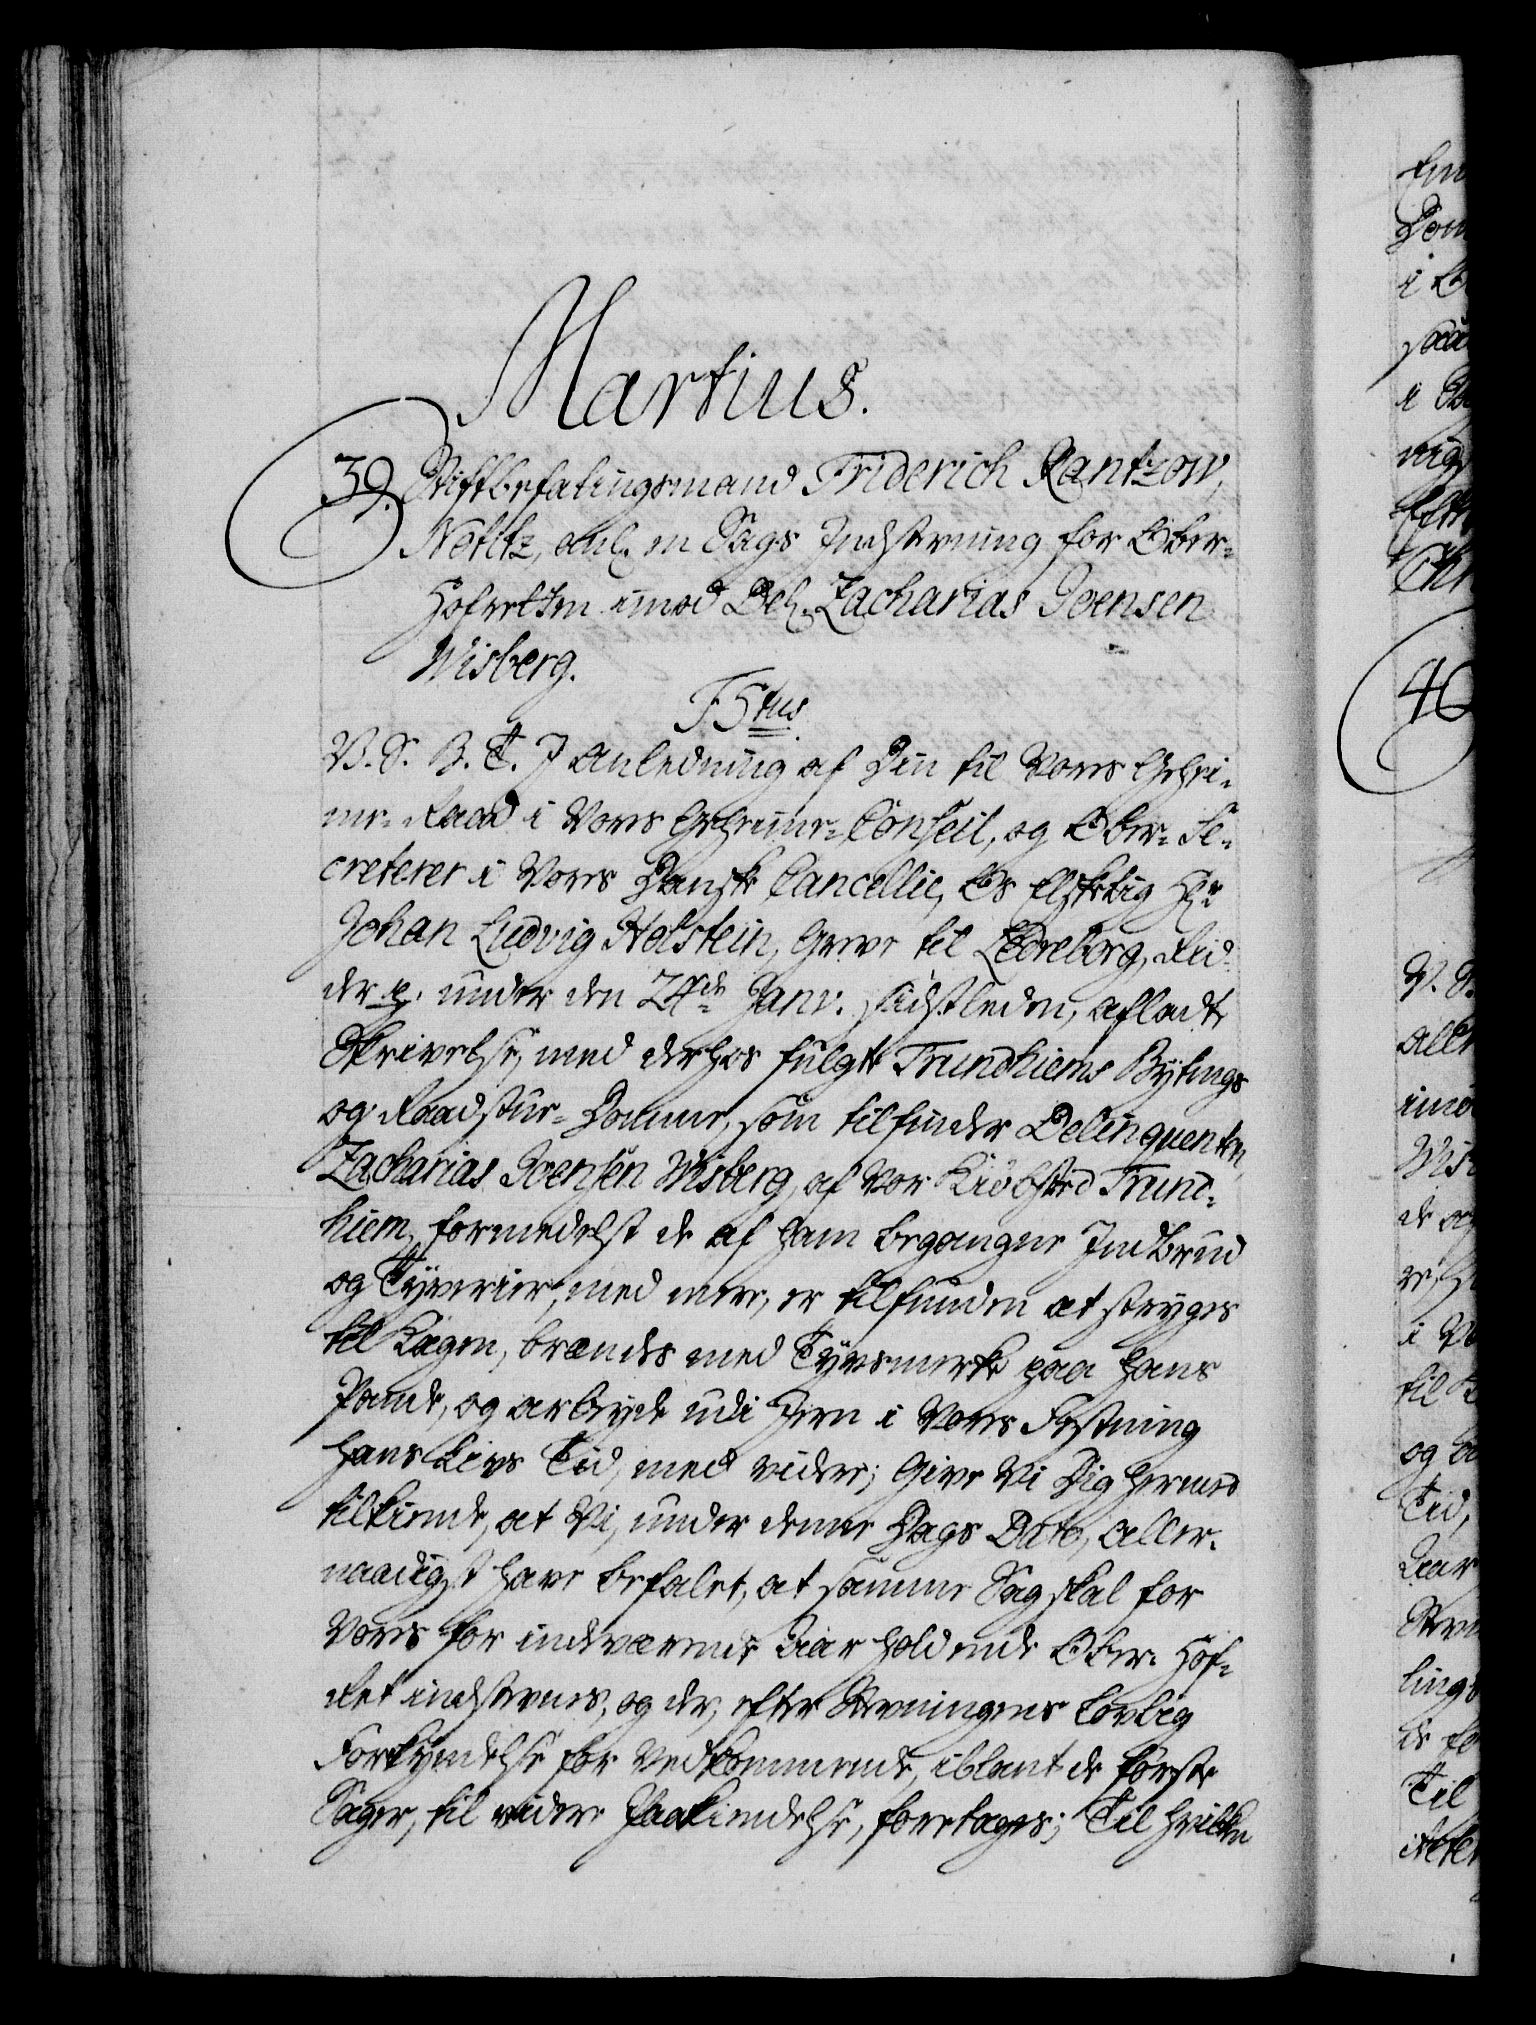 Martius.
39. Stiftbefalingsmand Friderich Rantzow,
Notitz, anl. en Sags Indstevning for Ober-
Hofretten imod Del. Zacharias Ivensen
Wisberg.
F5tus
V. S. B. T. I Anledning af Din til Vores Gehei-
me-Raad i Vores Geheime-Conseil, og Ober-Se-
creterer i Vores Danske Cancellie, Os Elskelig Hr
Johan Ludvig Holstein, Greve til Ledreborg, Rid-
der p. under den 24de Janv. sidstleden, afladte
Skrivelse, med derhos fulgte Trundhiems Bytings
og Raadstue-Domme, som tilfinder Delinquenten
Zacharias Ivensen Wisberg, af Vor Kiøbsted Trund-
hiem, formedelst de af ham begangne Indbrud
og Tyverier, med mere, er tilfunden at stryges
til Kagen, brændes med Tyvsmerke paa hans
Pande, og arbeyde udi Jern i Vores Festning
hans Livs Tid, med videre; Give Vi Dig hermed
tilkiende, at Vi, under denne Dags Dato, aller-
naadigst have befalet, at samme Sag skal for
Vores for indeværende Aar holdende Ober-Hof-
Ret indstevnes, og der, efter Stevningens lovlig
Forkyndelse for Vedkommende, iblant de første
Sager, til videre Paakiendelse, foretages; Til hvilken